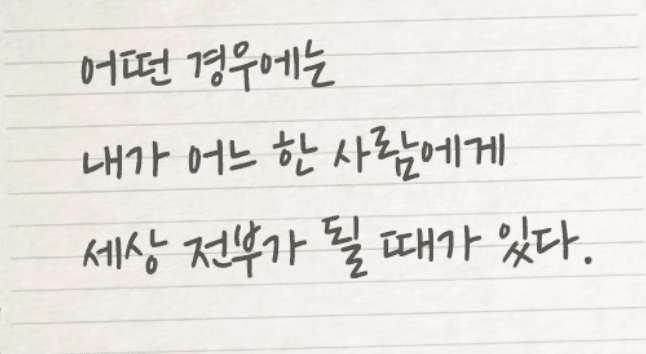 어떤 경우에는
내가 어느 한 사람에게
세상 전부가 될 때가 있다.